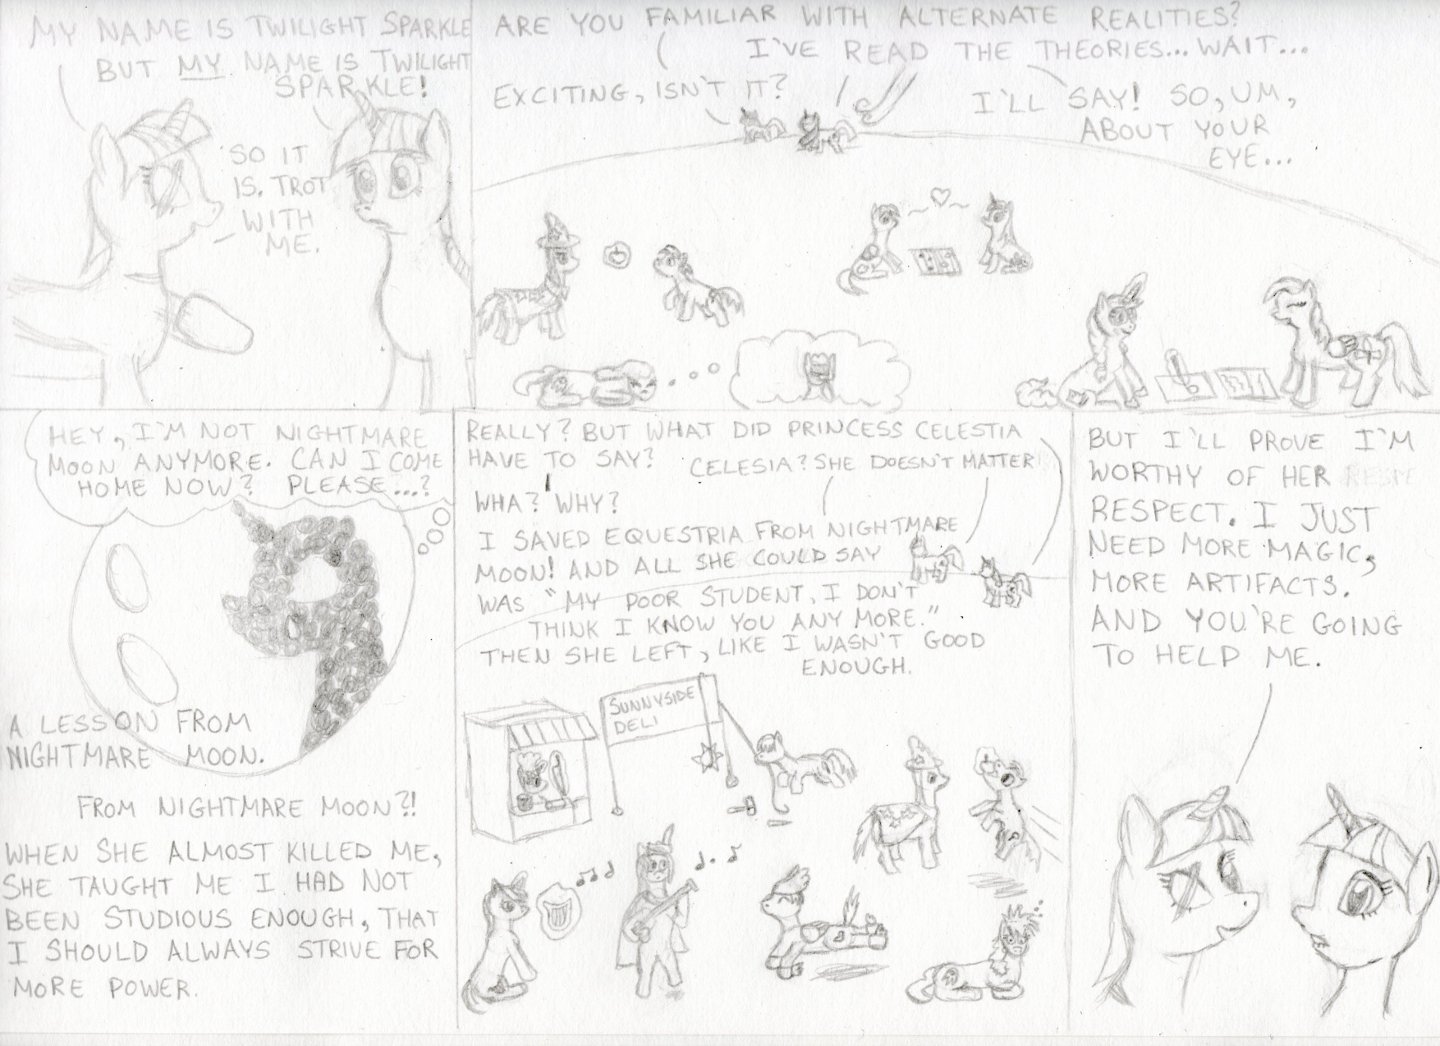 MY NAME IS TWILIGHT SPARKLE
BUT MY NAME IS TWILIGHT
SPARKLE!
SO IT
IS. TROT
WITH
ME.
ARE YOU FAMILIAR WITH ALTERNATE REALITIES?
I'VE READ THE THEORIES... WAIT...
EXCITING, ISN'T IT?
I'LL SAY! SO, UM,
ABOUT YOUR
EYE...
HEY, I'M NOT NIGHTMARE
MOON ANYMORE. CAN I COME
HOME NOW? PLEASE...?
A LESSON FROM
NIGHTMARE MOON.
FROM NIGHTMARE MOON?!
WHEN SHE ALMOST KILLED ME,
SHE TAUGHT ME I HAD NOT
BEEN STUDIOUS ENOUGH, THAT
I SHOULD ALWAYS STRIVE FOR
MORE POWER.
REALLY? BUT WHAT DID PRINCESS CELESTIA
HAVE TO SAY?
CELESIA? SHE DOESN'T MATTER!
WHA? WHY?
I SAVED EQUESTRIA FROM NIGHTMARE
MOON! AND ALL SHE COULD SAY
WAS "MY POOR STUDENT, I DON'T
THINK I KNOW YOU ANY MORE."
THEN SHE LEFT, LIKE I WASN'T GOOD
ENOUGH.
SUNNYSIDE
DELI
BUT I'LL PROVE I'M
WORTHY OF HER RESPE
RESPECT. I JUST
NEED MORE MAGIC,
MORE ARTIFACTS.
AND YOU'RE GOING
TO HELP ME.